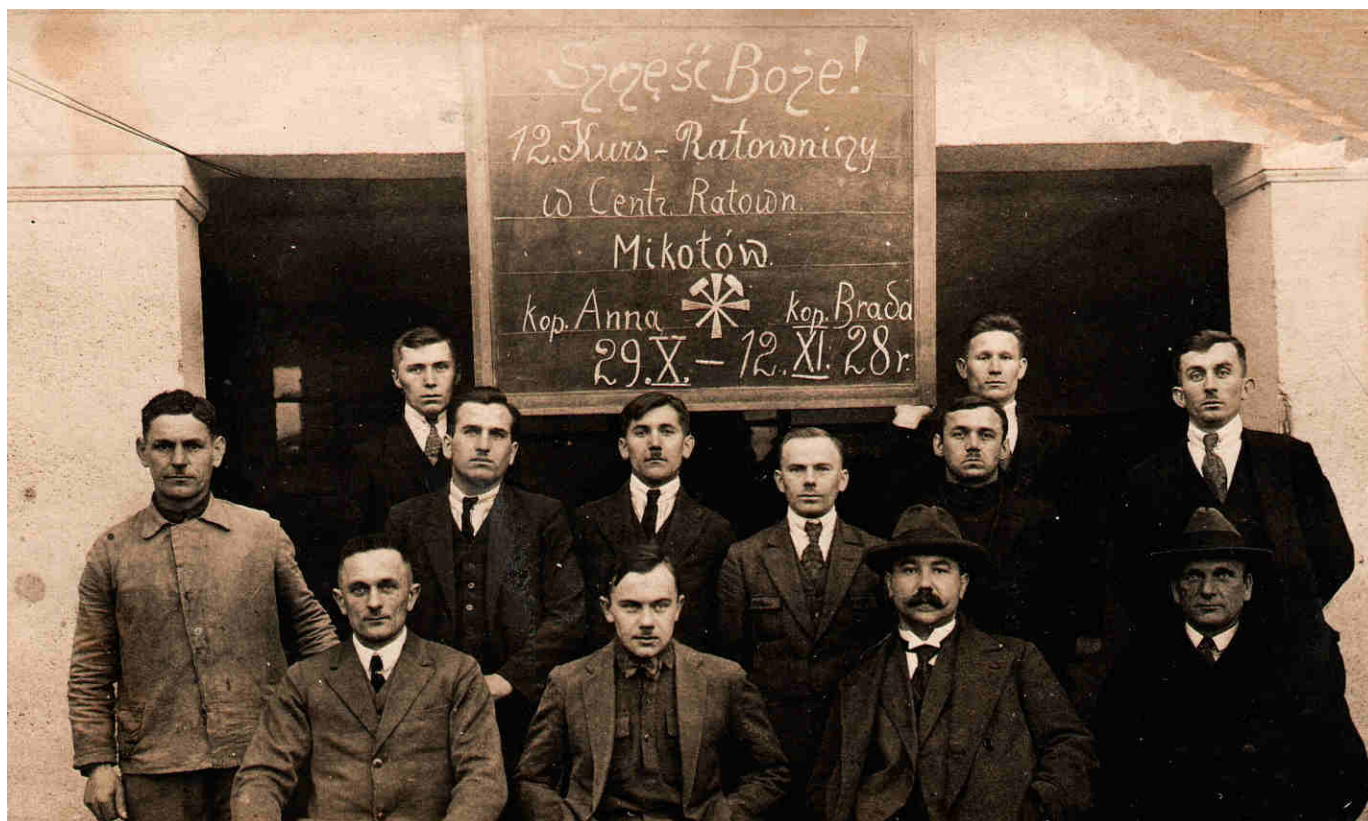 Szczęść Boże!
12. Kurs - Ratowniczy
w Centr. Ratown.
Mikołów.
kop. Anna kop. Brada
29. X. - 12. XI. 28 r.